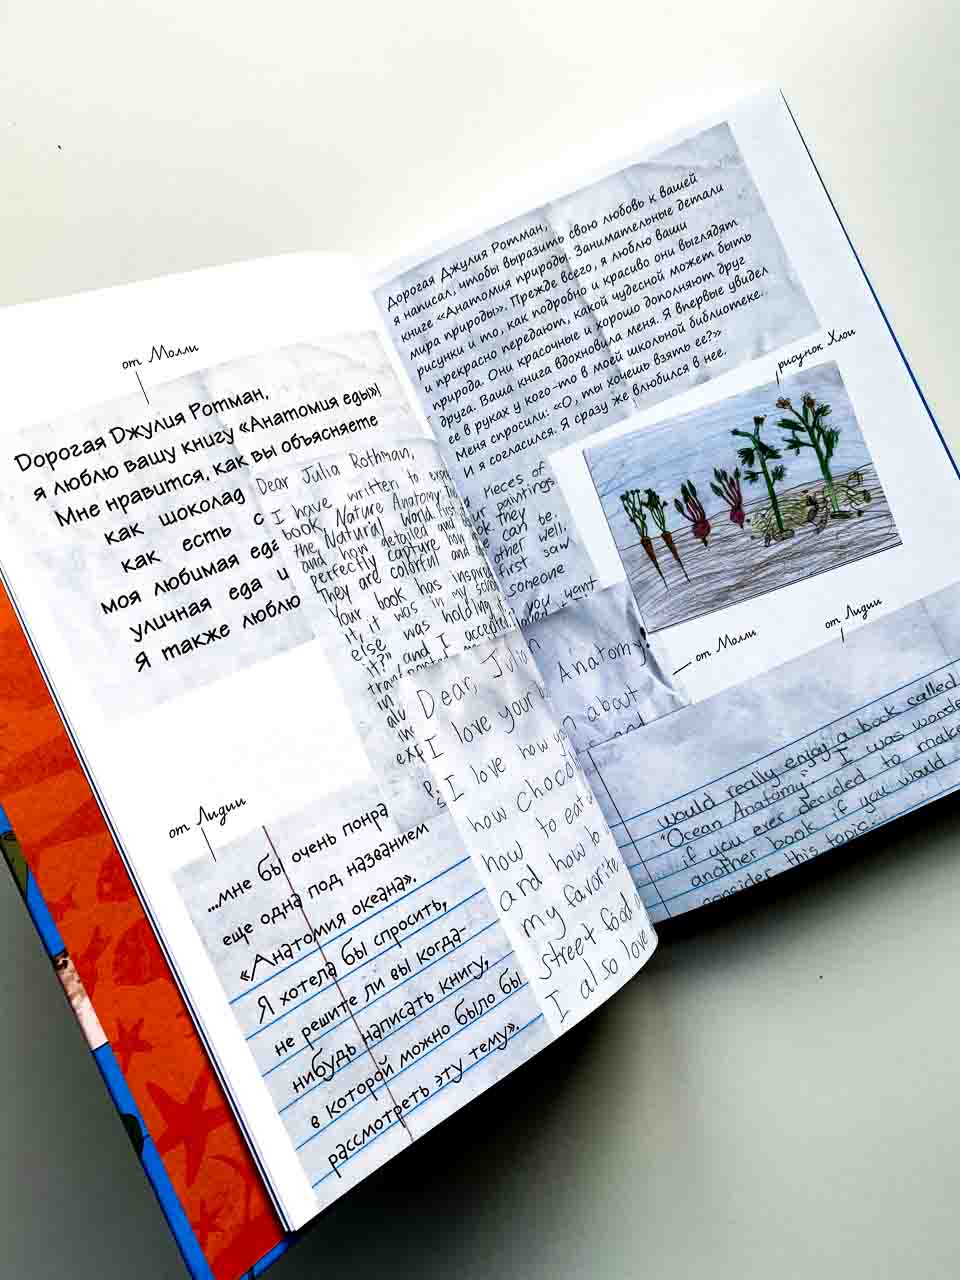 от Молли
Дорогая Джулия Ротман,
я люблю вашу книгу «Анатомия еды»!
Мне нравится, как вы объясняете
как шоколад
как есть с
моя любимая еда
уличная еда и
Я также люблю
Dear Julia Rothman,
I have written to
book, Nature Anatomy.
the Natural World. First
and how detailed and
perfectly capture how
They are colorful and
Your book has inspir
it, it was in my scho
else was holding it.
it?" and I accepted.
in
от Лидии
...мне бы очень понра
еще одна под названием
«Анатомия океана».
Я хотела бы спросить,
не решите ли вы когда-
нибудь написать книгу,
в которой можно было бы
рассмотреть эту тему».
Dear, Julia
I love your
I love how yo
how choco
how to eat
and how to
my favorite
street food
I also love
Дорогая Джулия Ротман,
я написал, чтобы выразить свою любовь к вашей
книге «Анатомия природы». Занимательные детали
мира природы». Прежде всего, я люблю ваши
рисунки и то, как подробно и красиво они выглядят
и прекрасно передают, какой чудесной может быть
природа. Они красочные и хорошо дополняют друг
друга. Ваша книга вдохновила меня. Я впервые увидел
ее в руках у кого-то в моей школьной библиотеке.
Меня спросили: «О, ты хочешь взять ее?»
И я согласился. Я сразу же влюбился в нее.
Pieces of
paintings
they
can be.
other well.
first saw
someone
you want
рисунок Хлои
от Молли
Anatomy!
about
and
от Лидии
would really enjoy a book called
"Ocean Anatomy". I was wonde
if you ever decided to make
another book if you would
consider this topic.